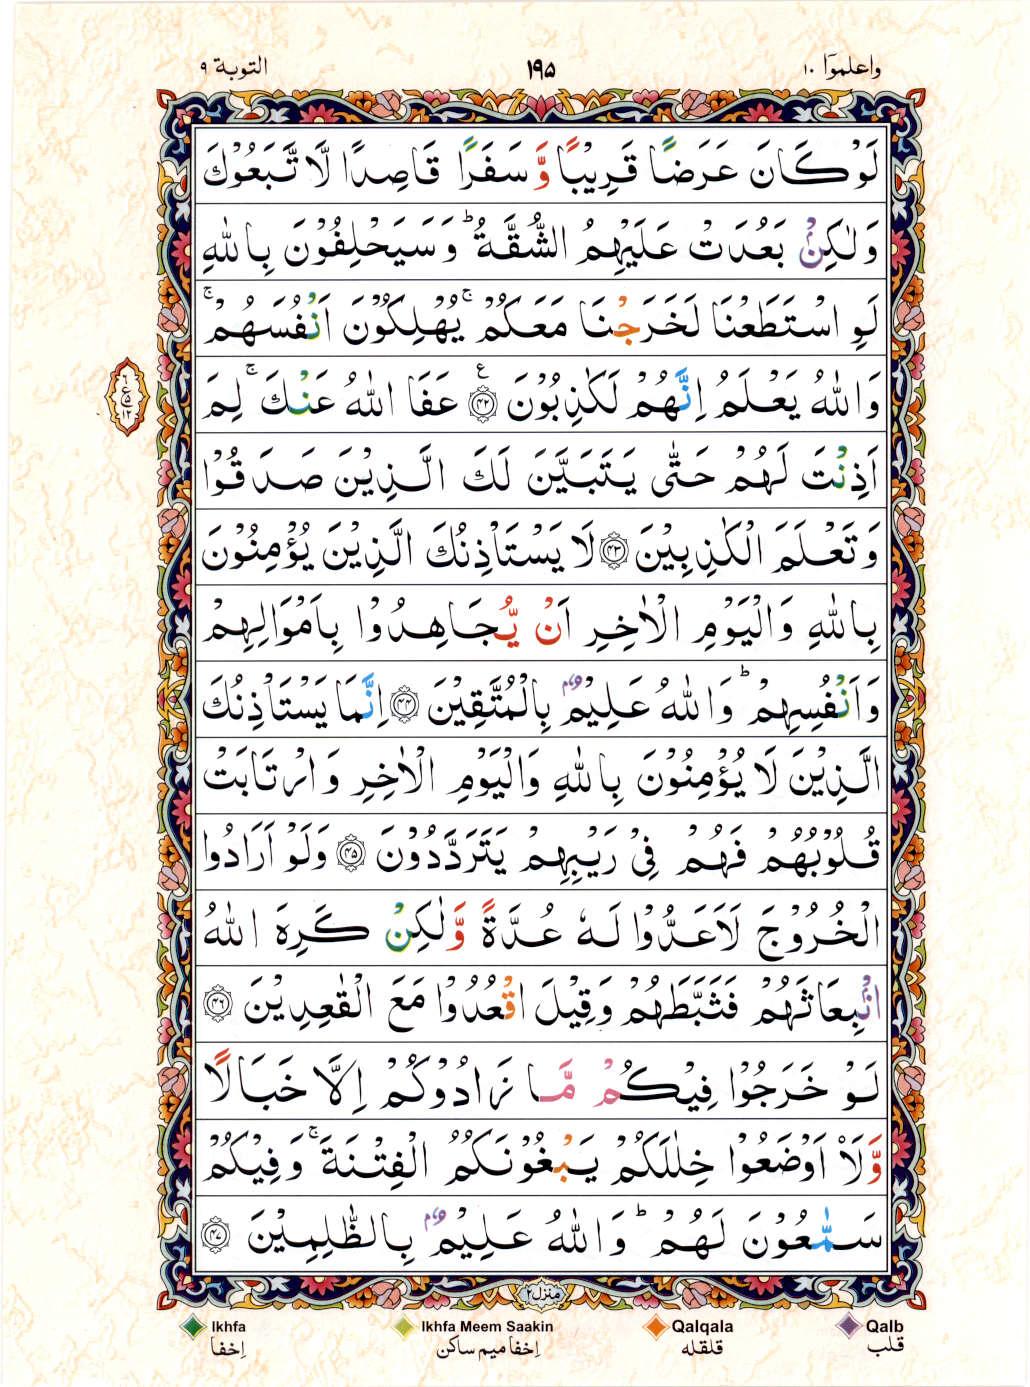 التوبة ٩
١٩٥
واعلموٓا ١٠
لَوْ كَانَ عَرَضًا قَرِيْبًا وَّ سَفَرًا قَاصِدًا لَّا تَّبَعُوْكَ
وَلٰكِنْۢ بَعُدَتْ عَلَيْهِمُ الشُّقَّةُ ؕ وَ سَيَحْلِفُوْنَ بِاللّٰهِ
لَوِ اسْتَطَعْنَا لَخَرَجْنَا مَعَكُمْ ۚ يُهْلِكُوْنَ اَنْفُسَهُمْ ۚ
وَاللّٰهُ يَعْلَمُ اِنَّهُمْ لَكٰذِبُوْنَ ﴿۴۲﴾ ع عَفَا اللّٰهُ عَنْكَ ۚ لِمَ
اَذِنْتَ لَهُمْ حَتّٰى يَتَبَيَّنَ لَكَ الَّذِيْنَ صَدَقُوْا
وَتَعْلَمَ الْكٰذِبِيْنَ ﴿۴۳﴾ لَا يَسْتَاْذِنُكَ الَّذِيْنَ يُؤْمِنُوْنَ
بِاللّٰهِ وَالْيَوْمِ الْاٰخِرِ اَنْ يُّجَاهِدُوْا بِاَمْوَالِهِمْ
وَاَنْفُسِهِمْ ؕ وَاللّٰهُ عَلِيْمٌۢ بِالْمُتَّقِيْنَ ﴿۴۴﴾ اِنَّمَا يَسْتَاْذِنُكَ
الَّذِيْنَ لَا يُؤْمِنُوْنَ بِاللّٰهِ وَالْيَوْمِ الْاٰخِرِ وَ ارْتَابَتْ
قُلُوْبُهُمْ فَهُمْ فِيْ رَيْبِهِمْ يَتَرَدَّدُوْنَ ﴿۴۵﴾ وَلَوْ اَرَادُوا
الْخُرُوْجَ لَاَعَدُّوْا لَهٗ عُدَّةً وَّلٰكِنْ كَرِهَ اللّٰهُ
انْۢبِعَاثَهُمْ فَثَبَّطَهُمْ وَقِيْلَ اقْعُدُوْا مَعَ الْقٰعِدِيْنَ ﴿۴۶﴾
لَوْ خَرَجُوْا فِيْكُمْ مَّا زَادُوْكُمْ اِلَّا خَبَالًا
وَّلَا۟ اَوْضَعُوْا خِلٰلَكُمْ يَبْغُوْنَكُمُ الْفِتْنَةَ ۚ وَفِيْكُمْ
سَمّٰعُوْنَ لَهُمْ ؕ وَاللّٰهُ عَلِيْمٌۢ بِالظّٰلِمِيْنَ ﴿۴۷﴾
منزل ۲
Ikhfa
Ikhfa Meem Saakin
Qalqala
Qalb
اِخفا
اِخفا میم ساکن
قلقله
قلب